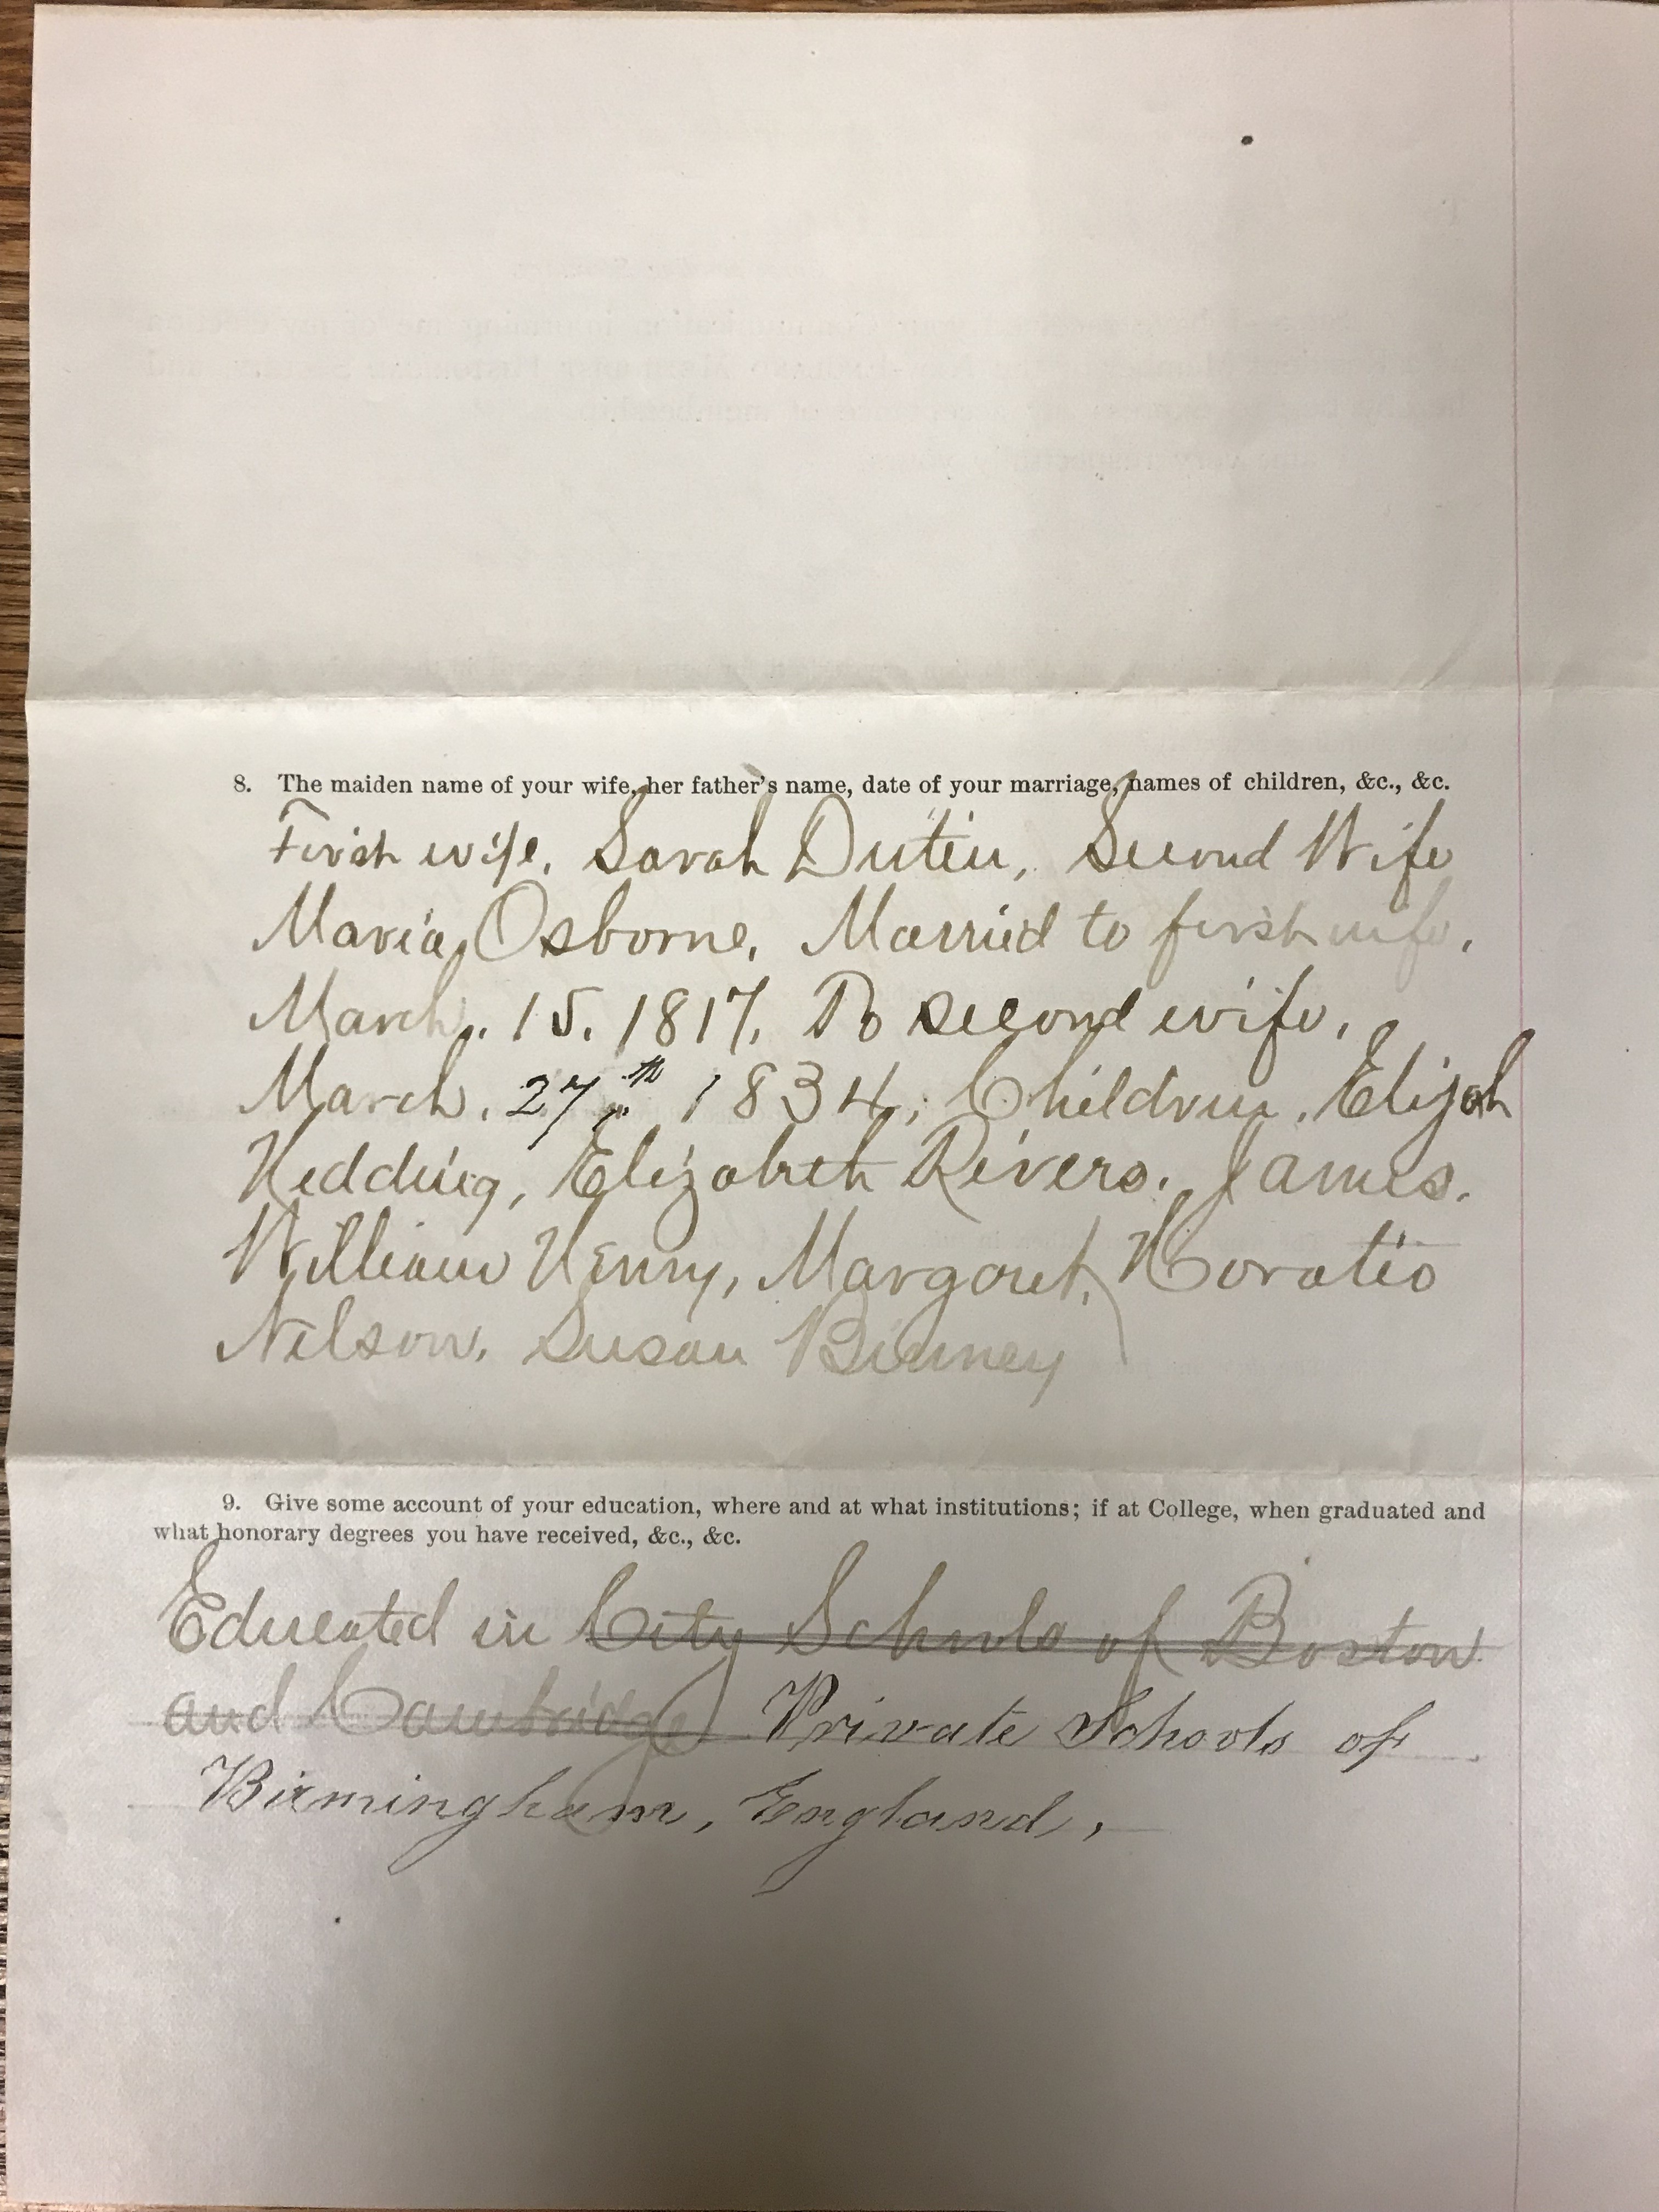 8. The maiden name of your wife, her father's name, date of your marriage, names of children, &c., &c.
First wife. Sarah Dutin, Second Wife
Maria Osborne. Married to first wife.
March. 15. 1817. To second wife.
March. 27th 1834. Children. Elijah
Hedding, Elizabeth Rivers. James.
William Henry, Margaret. Horatio
Nelson. Susan Binney
9. Give some account of your education, where and at what institutions; if at College, when graduated and
what honorary degrees you have received, &c., &c.
Educated in City Schools of Boston
and Cambridge Private Schools of
Birmingham, England,